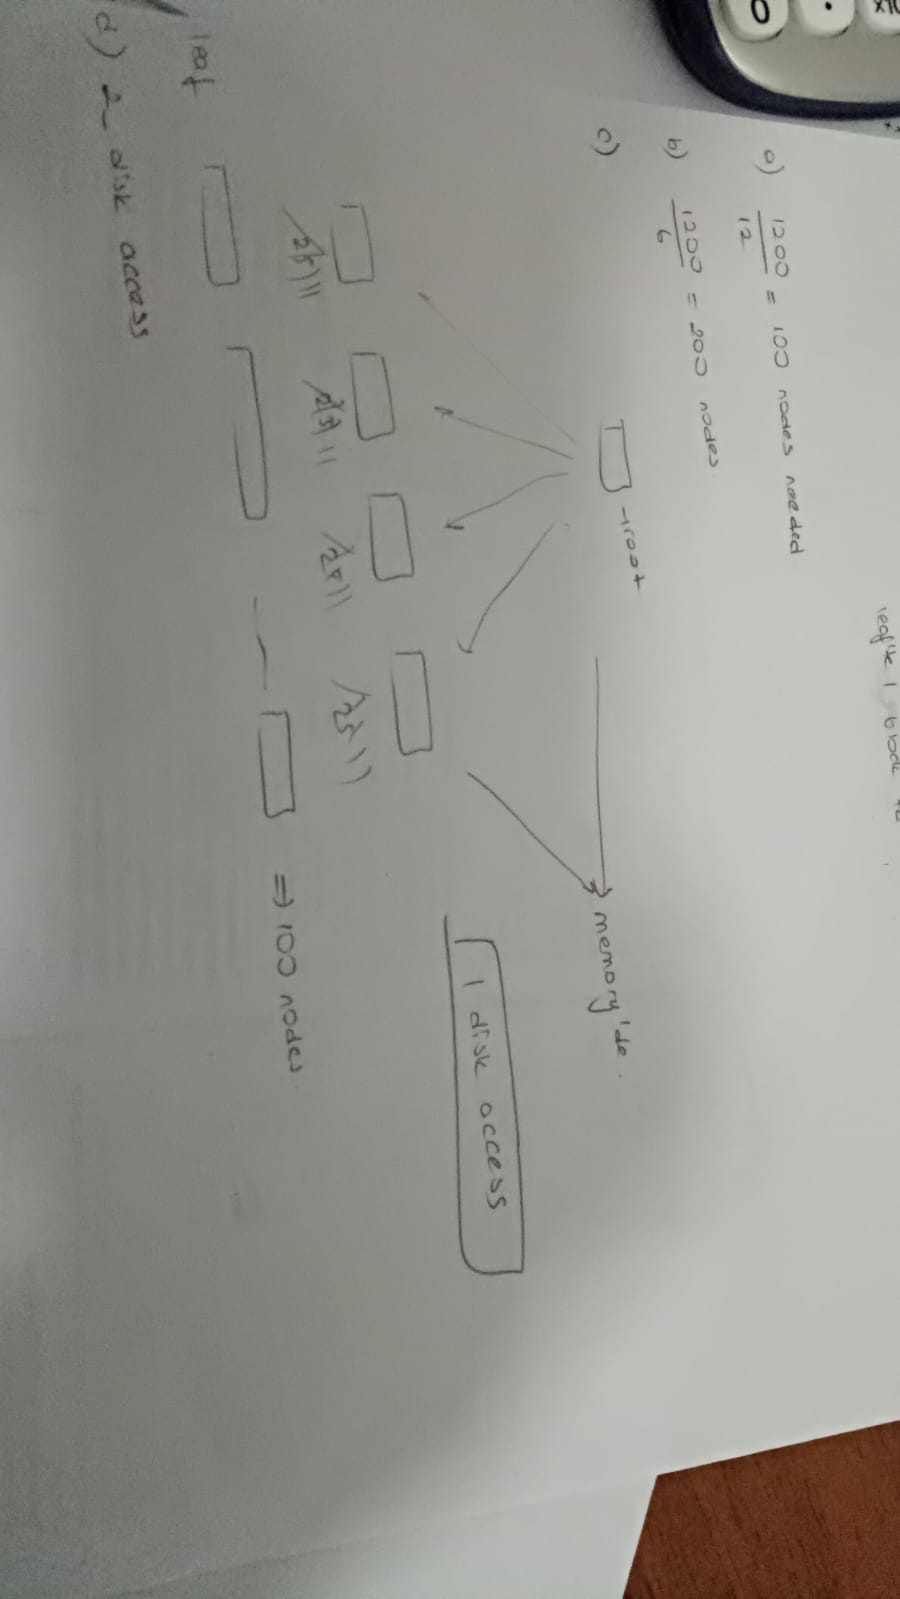 leaf'te 1 block
a) 1200 / 12 = 100 nodes needed
b) 1200 / 6 = 200 nodes
c) → root
→ memory'de.
1 disk access
25 25
⇒ 100 nodes
leaf
d) 2 disk access
0